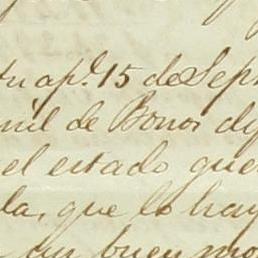 apl. 15 de Sep
mil de Bonos
el estado que
la, que lo hay
un buen mo